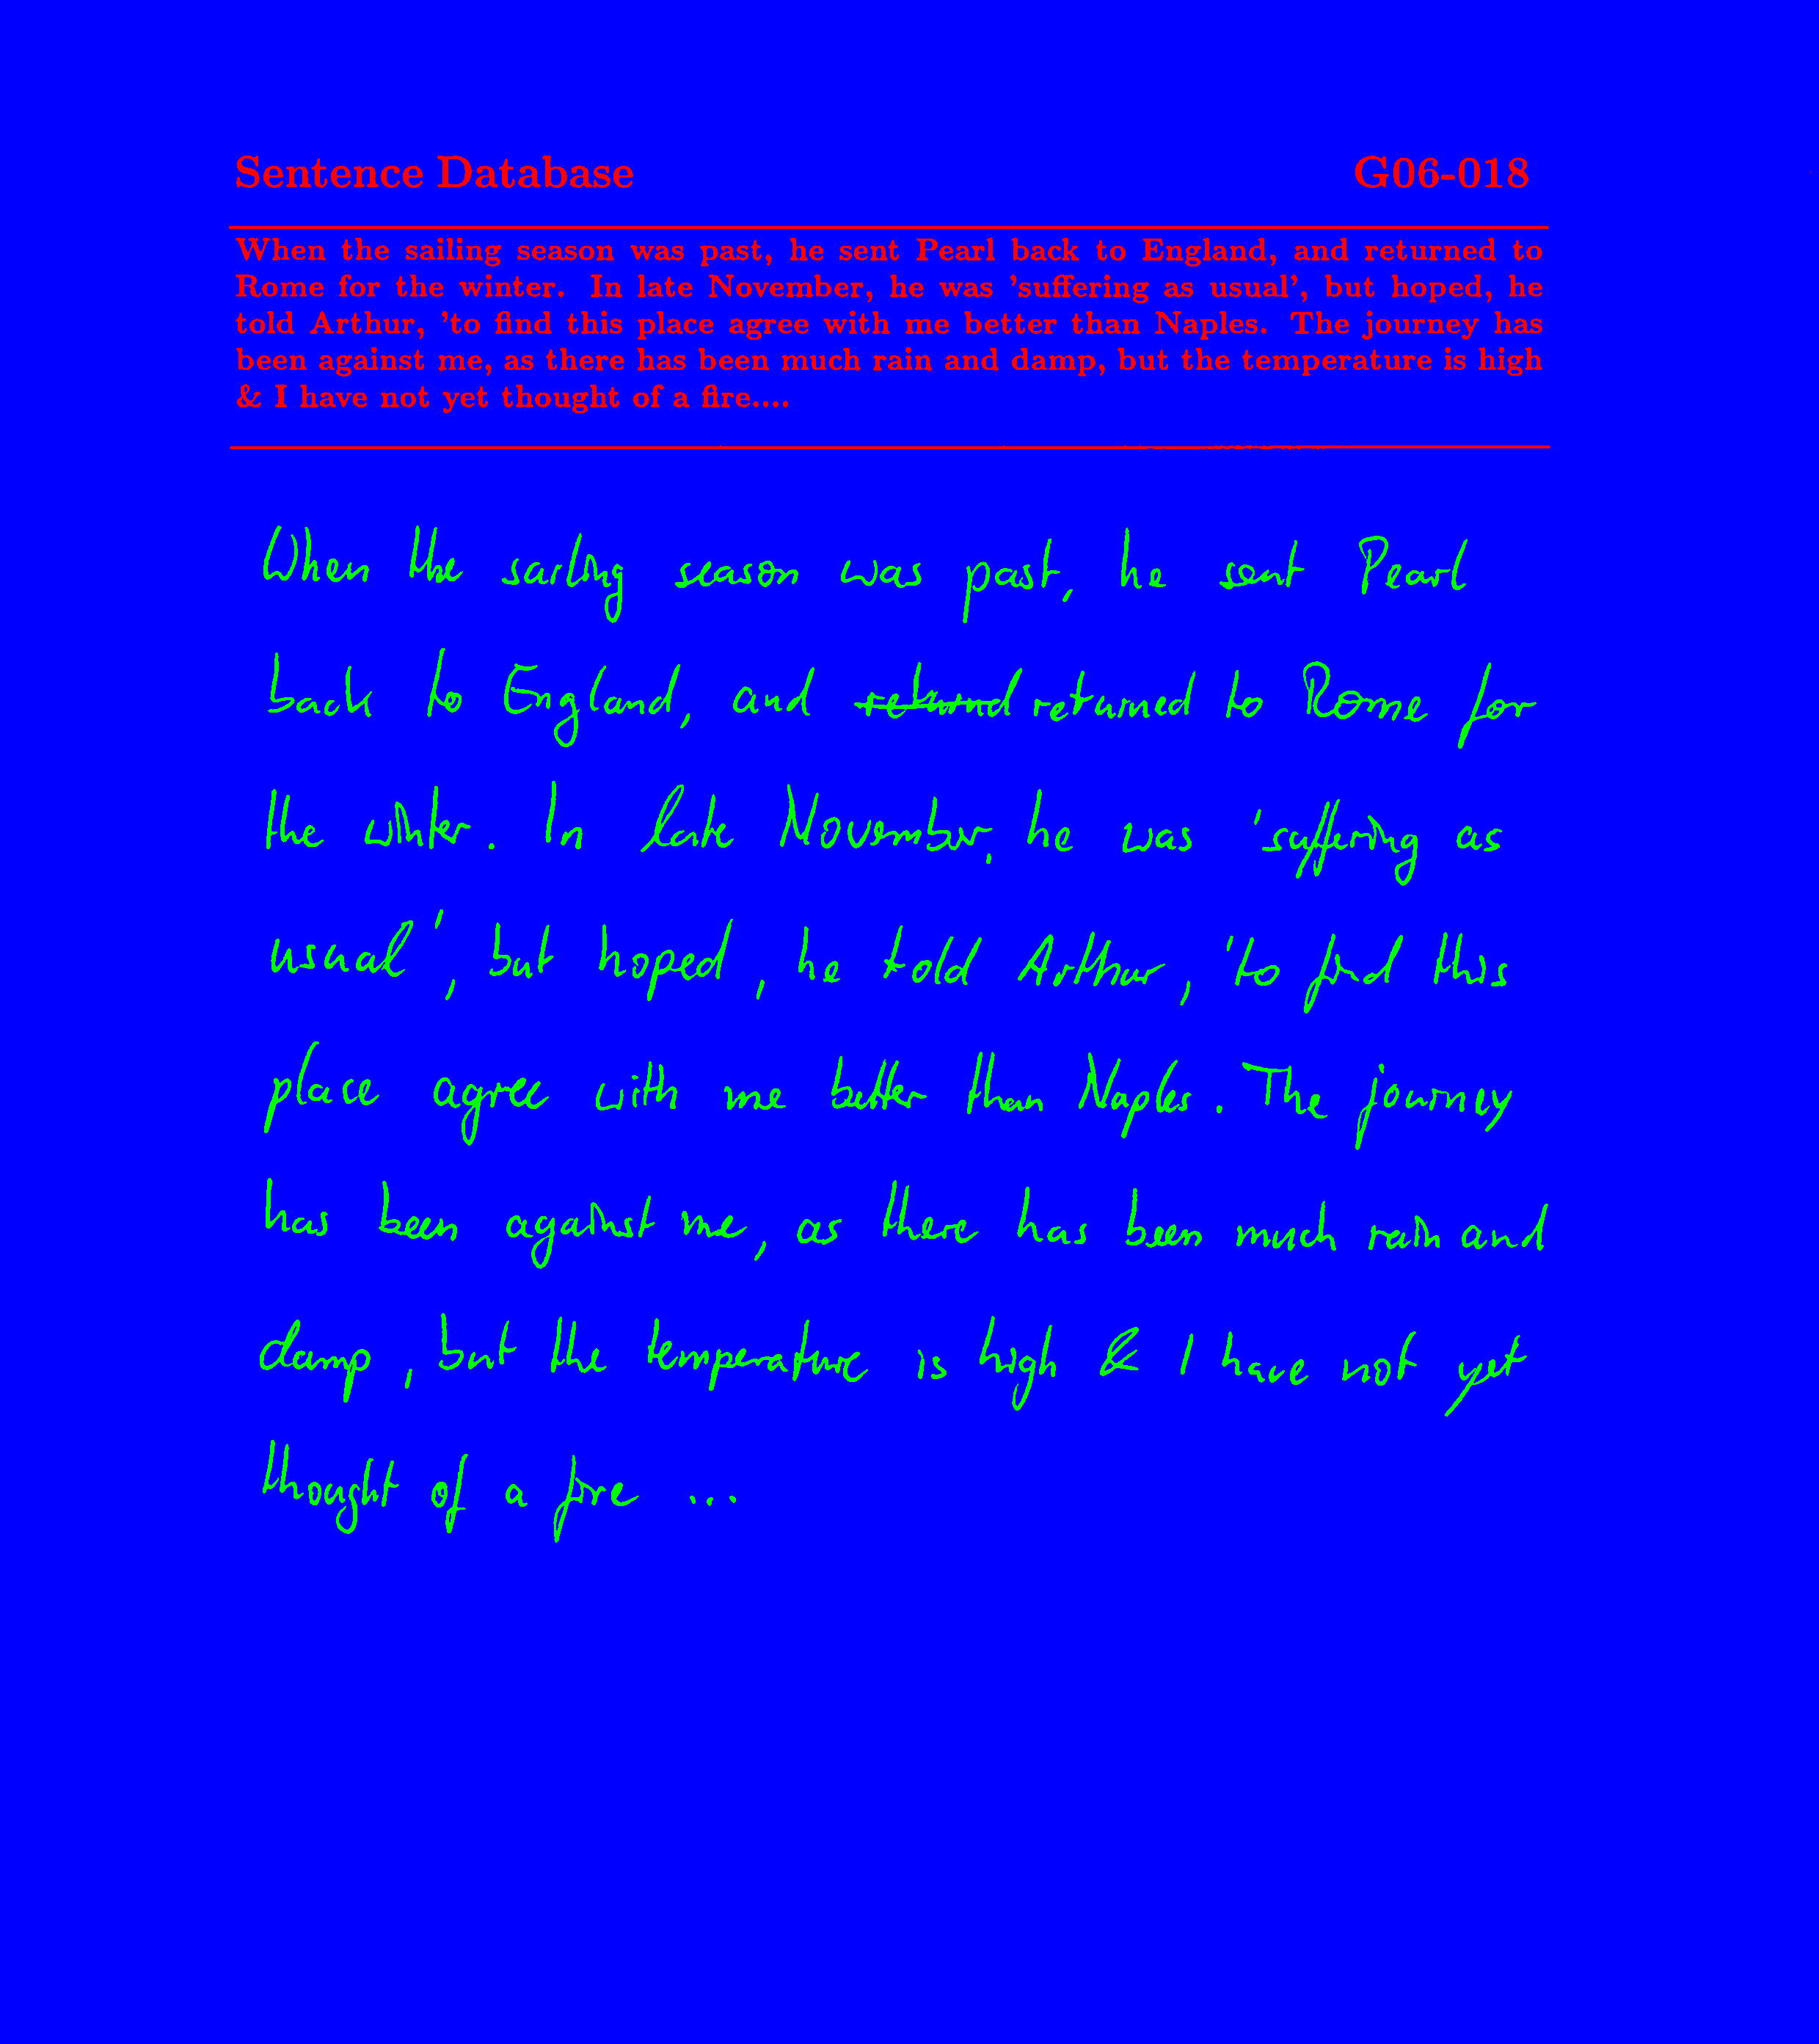 Sentence Database G06-018
When the sailing season was past, he sent Pearl back to England, and returned to
Rome for the winter. In late November, he was 'suffering as usual', but hoped, he
told Arthur, 'to find this place agree with me better than Naples. The journey has
been against me, as there has been much rain and damp, but the temperature is high
& I have not yet thought of a fire....
When the sailing season was past, he sent Pearl
back to England, and returnd returned to Rome for
the winter. In late November, he was 'suffering as
usual', but hoped, he told Arthur, 'to find this
place agree with me better than Naples. The journey
has been against me, as there has been much rain and
damp, but the temperature is high & I have not yet
thought of a fire ...